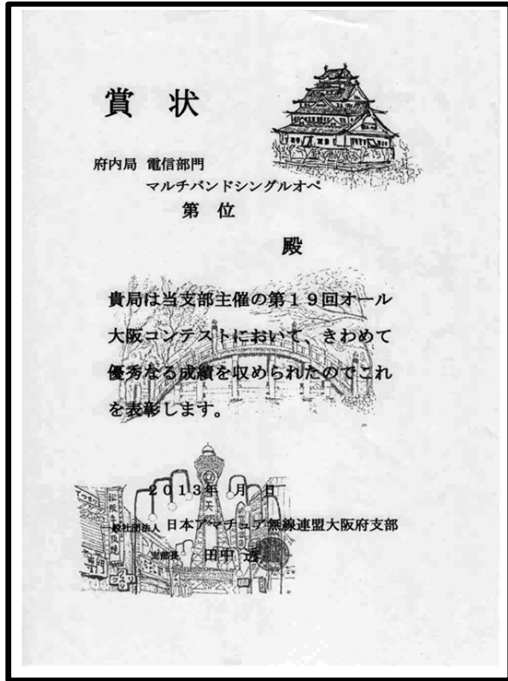 賞状
府内局 電信部門
マルチバンドシングルオペ
第 位
殿
貴局は当支部主催の第19回オール
大阪コンテストにおいて、きわめて
優秀なる成績を収められたのでこれ
を表彰します。
2013年 月 日
一般社団法人 日本アマチュア無線連盟大阪府支部
支部長 田中 透